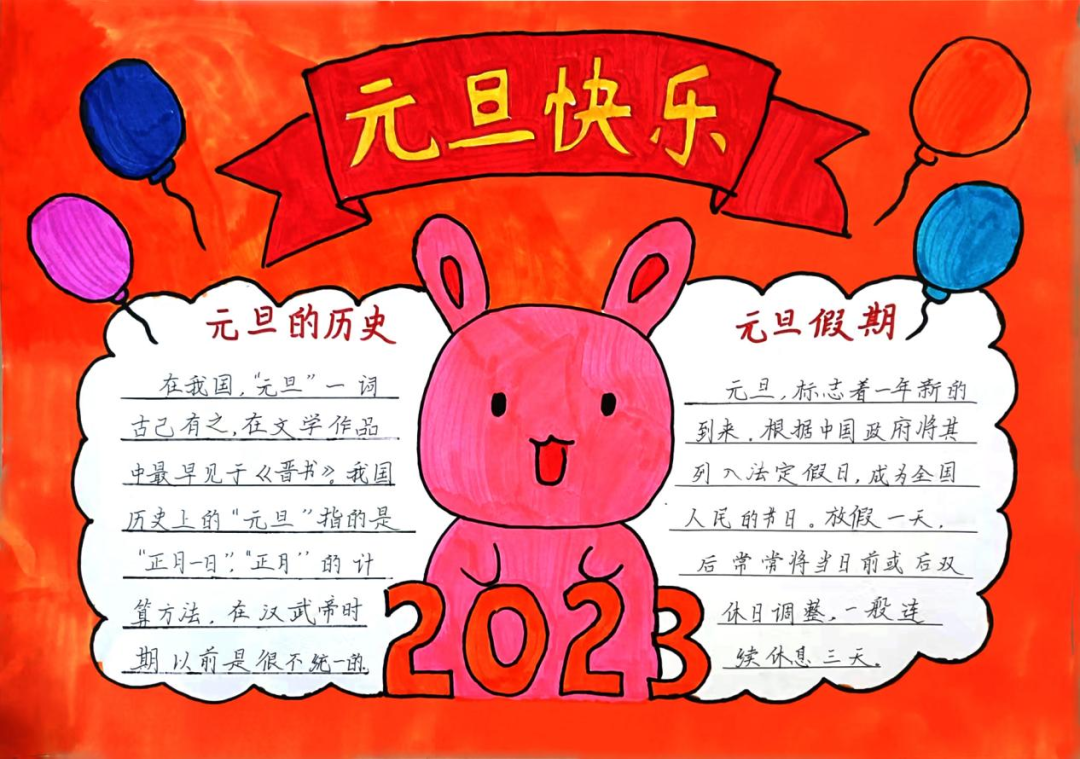 元旦快乐
元旦的历史
在我国，“元旦”一词
古已有之，在文学作品
中最早见于《晋书》。我国
历史上的“元旦”指的是
“正月一日”，“正月”的计
算方法，在汉武帝时
期以前是很不统一的
元旦假期
元旦，标志着一年新的
到来。根据中国政府将其
列入法定假日，成为全国
人民的节日。放假一天，
后常常将当日前或后双
休日调整，一般连
续休息三天。
2023